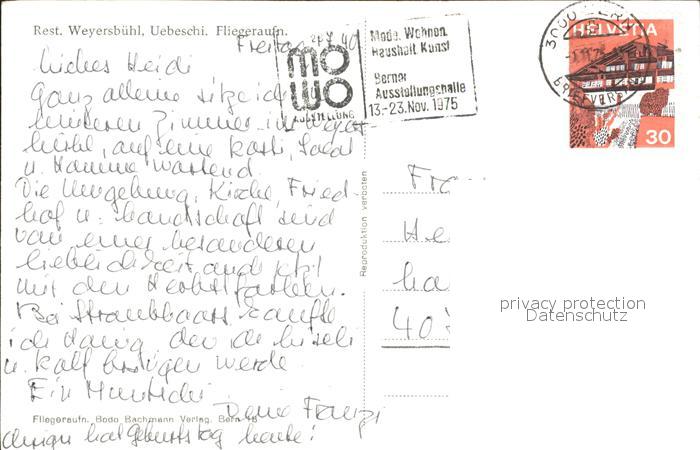 Rest. Weyersbühl, Uebeschi. Fliegeraufn.
Freitag
liebes Heidi
Ganz alleine sitze ich
hinteren Zimmer in
auf eine
u. Hamme wartend
Die Umgebung, Kirche, Fried-
hof u. Landschaft sind
von einer besonderen
lieblichkeit und jetzt
mit den Herbstfarben.
Bei Straubhaars kaufte
ich Honig, den ich
u. Kalf bringen werde
Ein Müntschi
Deine Franzi
hat Geburtstag heute!
Fliegeraufn. Bodo Bachmann Verlag, Bern 18
Reproduktion verboten
mo
wo
AUSSTELLUNG
Mode. Wohnen.
Haushalt Kunst
Berner
Ausstellungshalle
13.-23. Nov. 1975
3000 BERN
BRIEFVERSAND
HELVETIA
30
Fra
He
ha
40
privacy protection
Datenschutz